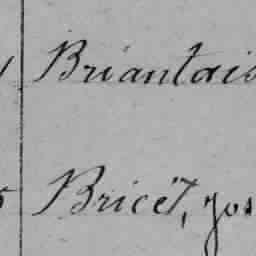 Briantais
Bricet, Jos